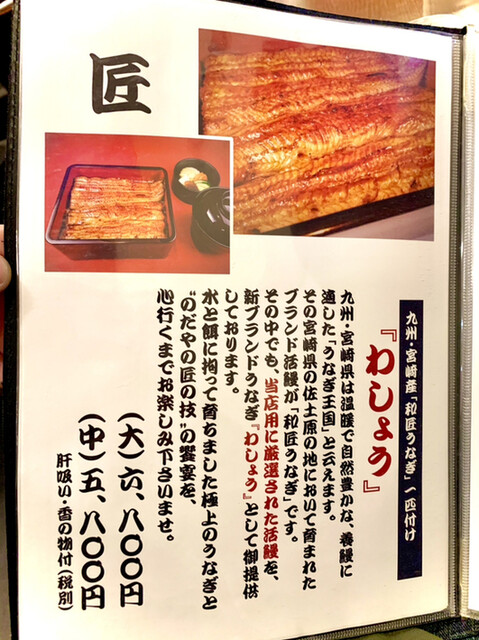 匠
九州・宮崎産「和匠うなぎ」一匹付け
『わしょう』
九州・宮崎県は温暖で自然豊かな、養鰻に
適した「うなぎ王国」と云えます。
その宮崎県の佐土原の地において育まれた
ブランド活鰻が「和匠うなぎ」です。
その中でも、当店用に厳選された活鰻を、
新ブランドうなぎ『わしょう』として御提供
しております。
水と餌に拘って育ちました極上のうなぎと
"のだやの匠の技"の饗宴を、
心行くまでお楽しみ下さいませ。
(大)六、八〇〇円
(中)五、八〇〇円
肝吸い・香の物付(税別)